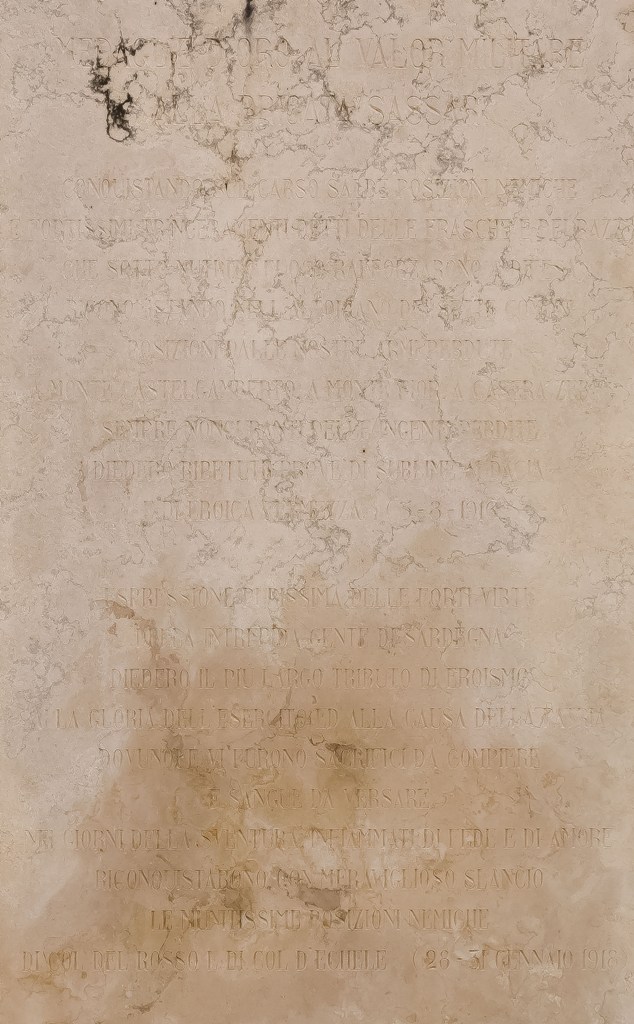 MEDAGLIE D'ORO AL VALOR MILITARE
ALLA BRIGATA SASSARI
CONQUISTANDO SUL CARSO SALDE POSIZIONI NEMICHE
E FORTISSIMI TRINCERAMENTI DETTI DELLE FRASCHE E DEI RAZZI
CHE SOTTO
RICONQUISTANDO NELL'ALTOPIANO DEI SETTE COMUNI
POSIZIONI DALLE NOSTRE ARMI PERDUTE
A MONTE CASTELGOMBERTO A MONTE FIOR A CASERA ZEBIO
SEMPRE NONCURANTI DELLE INGENTI PERDITE
DIEDERO RIPETUTE PROVE DI SUBLIME AUDACIA
E DI EROICA
ESPRESSIONE PURISSIMA DELLE FORTI VIRTÙ
DELLA INTREPIDA GENTE DI SARDEGNA
DIEDERO IL PIÙ LARGO TRIBUTO DI EROISMO
ALLA GLORIA DELL'ESERCITO ED ALLA CAUSA DELLA PATRIA
DOVUNQUE VI FURONO SACRIFICI DA COMPIERE
E SANGUE DA VERSARE
NEI GIORNI DELLA SVENTURA, INFIAMMATI DI FEDE E DI AMORE
RICONQUISTARONO CON MERAVIGLIOSO SLANCIO
LE MUNITISSIME POSIZIONI NEMICHE
DI COL DEL ROSSO E DI COL D'ECHELE (28-31 GENNAIO 1918)